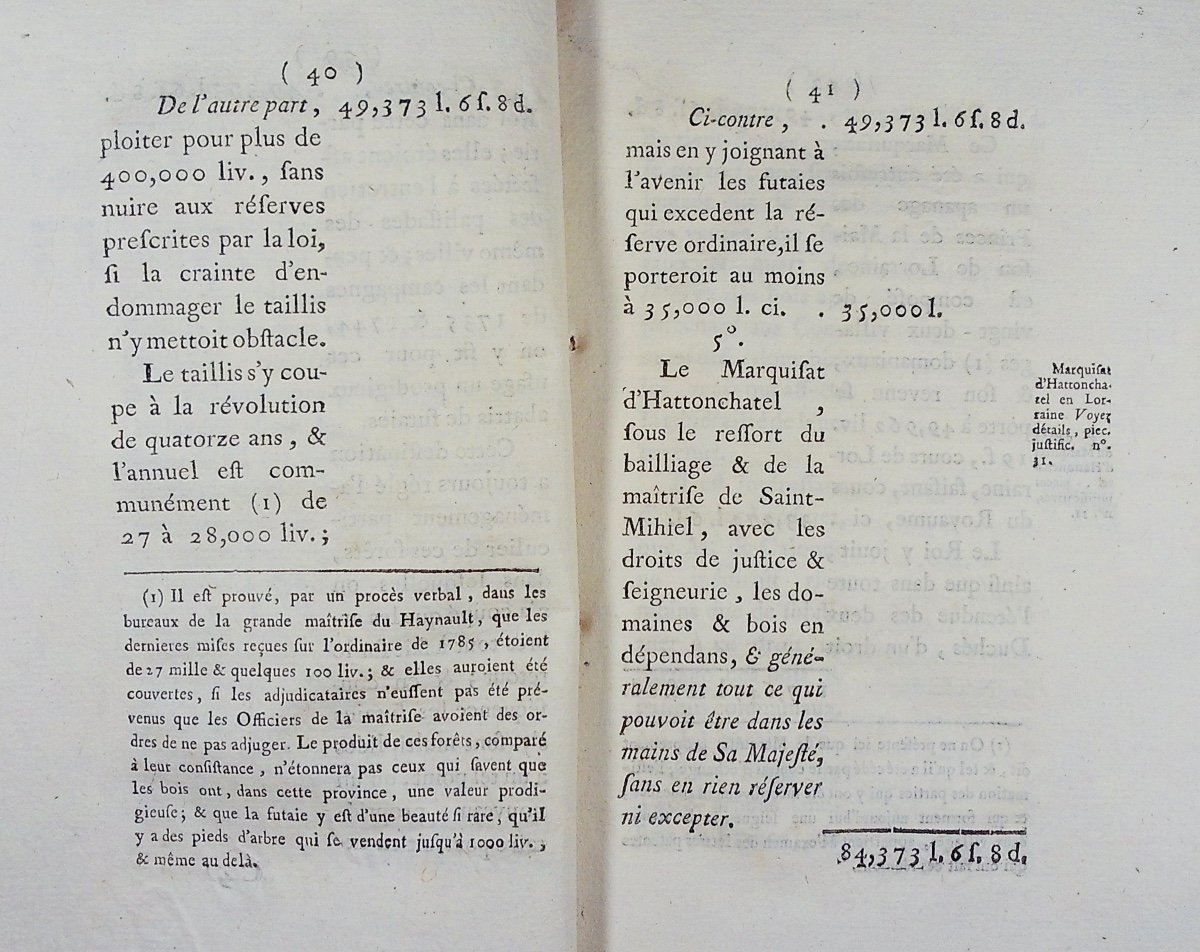 ( 40 )
De l'autre part, 49,373 l. 6 ſ. 8 d.
ploiter pour plus de
400,000 liv., ſans
nuire aux réſerves
preſcrites par la loi,
ſi la crainte d'en-
dommager le taillis
n'y mettoit obſtacle.
Le taillis s'y cou-
pe à la révolution
de quatorze ans, &
l'annuel eſt com-
munément (1) de
27 à 28,000 liv.;
(1) Il eſt prouvé, par un procès verbal, dans les
bureaux de la grande maîtriſe du Haynault, que les
dernieres miſes reçues ſur l'ordinaire de 1785, étoient
de 27 mille & quelques 100 liv.; & elles auroient été
couvertes, ſi les adjudicataires n'euſſent pas été pré-
venus que les Officiers de la maîtriſe avoient des or-
dres de ne pas adjuger. Le produit de ces forêts, comparé
à leur conſiſtance, n'étonnera pas ceux qui ſavent que
les bois ont, dans cette province, une valeur prodi-
gieuſe; & que la futaie y eſt d'une beauté ſi rare, qu'il
y a des pieds d'arbre qui ſe vendent juſqu'à 1000 liv.,
& même au delà.
( 41 )
Ci-contre, . 49,373 l. 6 ſ. 8 d.
mais en y joignant à
l'avenir les futaies
qui excedent la ré-
ſerve ordinaire, il ſe
porteroit au moins
à 35,000 l. ci. . 35,000 l.
5°.
Le Marquiſat
d'Hattonchatel,
ſous le reſſort du
bailliage & de la
maîtriſe de Saint-
Mihiel, avec les
droits de juſtice &
ſeigneurie, les do-
maines & bois en
dépendans, & géné-
ralement tout ce qui
pouvoit être dans les
mains de Sa Majeſté,
ſans en rien réſerver
ni excepter.
84,373 l. 6 ſ. 8 d.
Marquiſat
d'Hattoncha-
tel en Lor-
raine Voyez
détails, piec.
juſtific. n°.
31.